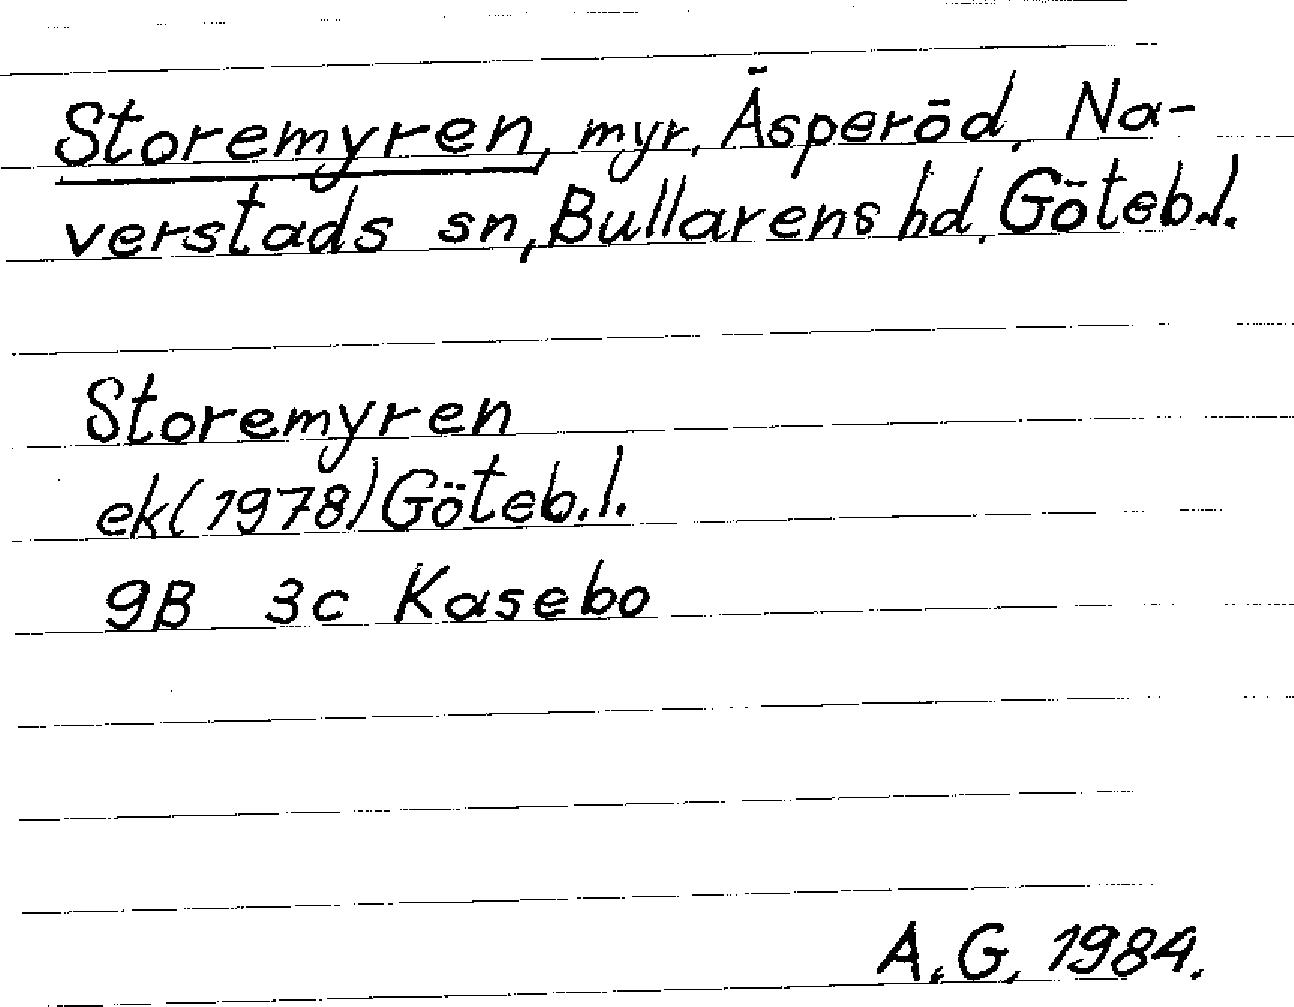 Storemyren, myr, Äsperöd, Na-
verstads sn, Bullarens hd, Göteb.l.
Storemyren
ek(1978) Göteb.l.
9B 3c Kasebo
A.G. 1984.